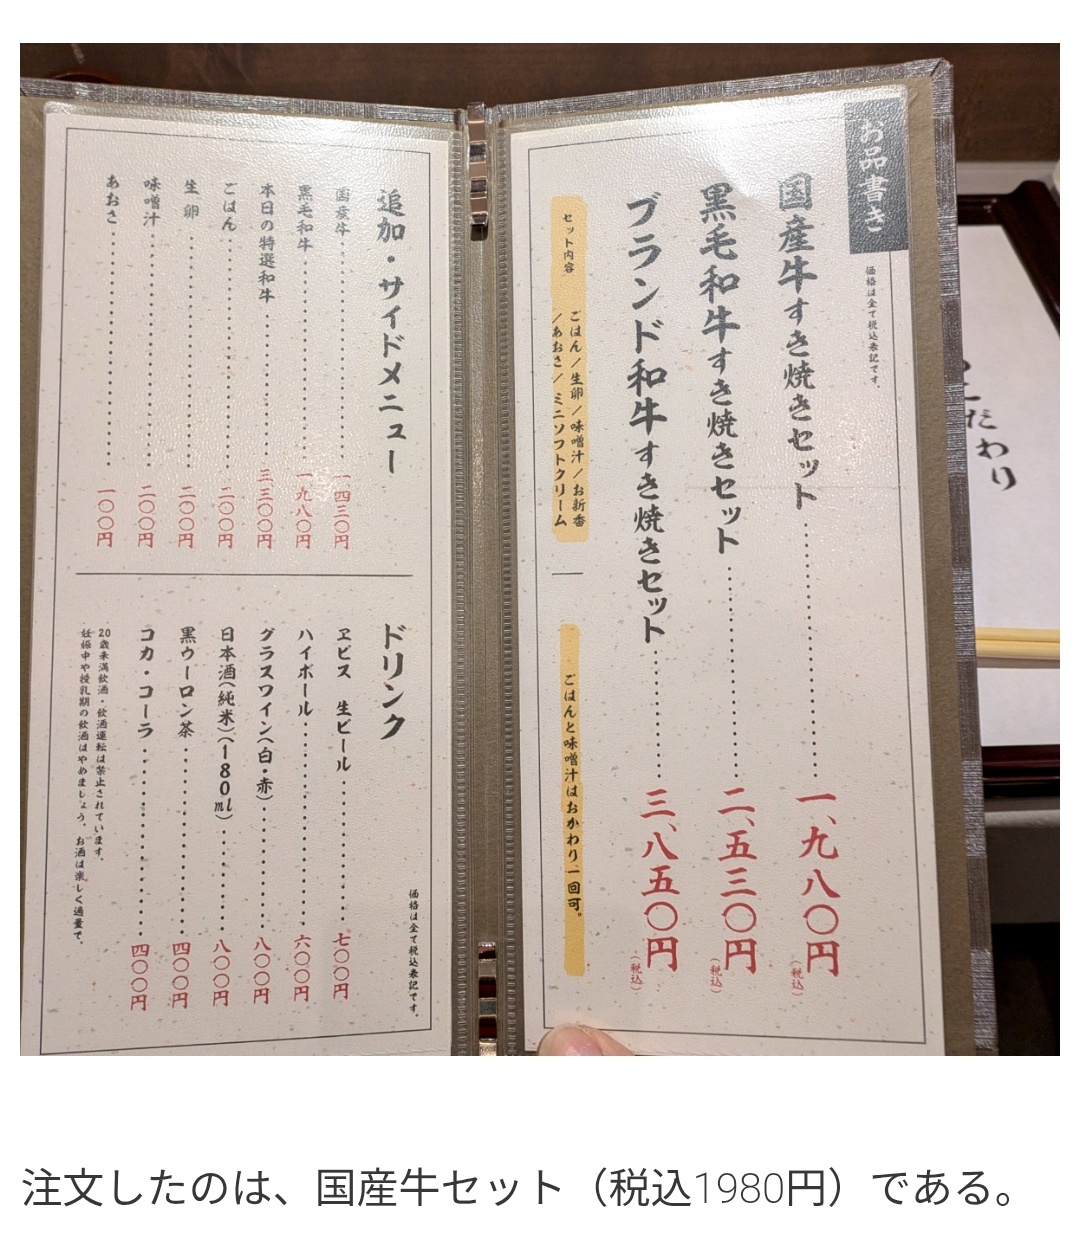 お品書き
価格は全て税込表記です。
国産牛すき焼きセット……一、九八〇円(税込)
黒毛和牛すき焼きセット……二、五三〇円(税込)
ブランド和牛すき焼きセット……三、八五〇円(税込)
セット内容
ごはん／生卵／味噌汁／お新香
／あおさ／ミニソフトクリーム
ごはんと味噌汁はおかわり一回可。
追加・サイドメニュー
国産牛……一、四三〇円
黒毛和牛……一、九八〇円
本日の特選和牛……三、三〇〇円
ごはん……二〇〇円
生卵……二〇〇円
味噌汁……二〇〇円
あおさ……一〇〇円
ドリンク
価格は全て税込表記です。
ヱビス 生ビール……七〇〇円
ハイボール……六〇〇円
グラスワイン(白・赤)……八〇〇円
日本酒(純米)(180ml)……八〇〇円
黒ウーロン茶……四〇〇円
コカ・コーラ……四〇〇円
20歳未満飲酒・飲酒運転は禁止されています。
妊娠中や授乳期の飲酒はやめましょう。お酒は楽しく適量で。
こだわり
注文したのは、国産牛セット（税込1980円）である。